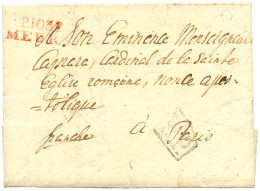 P.107.P.
ME
A Son Eminence Monseigneur
Caprara, Cardinal de la Sainte
Eglise romaine, nonce apos-
=tolique
franche à Paris